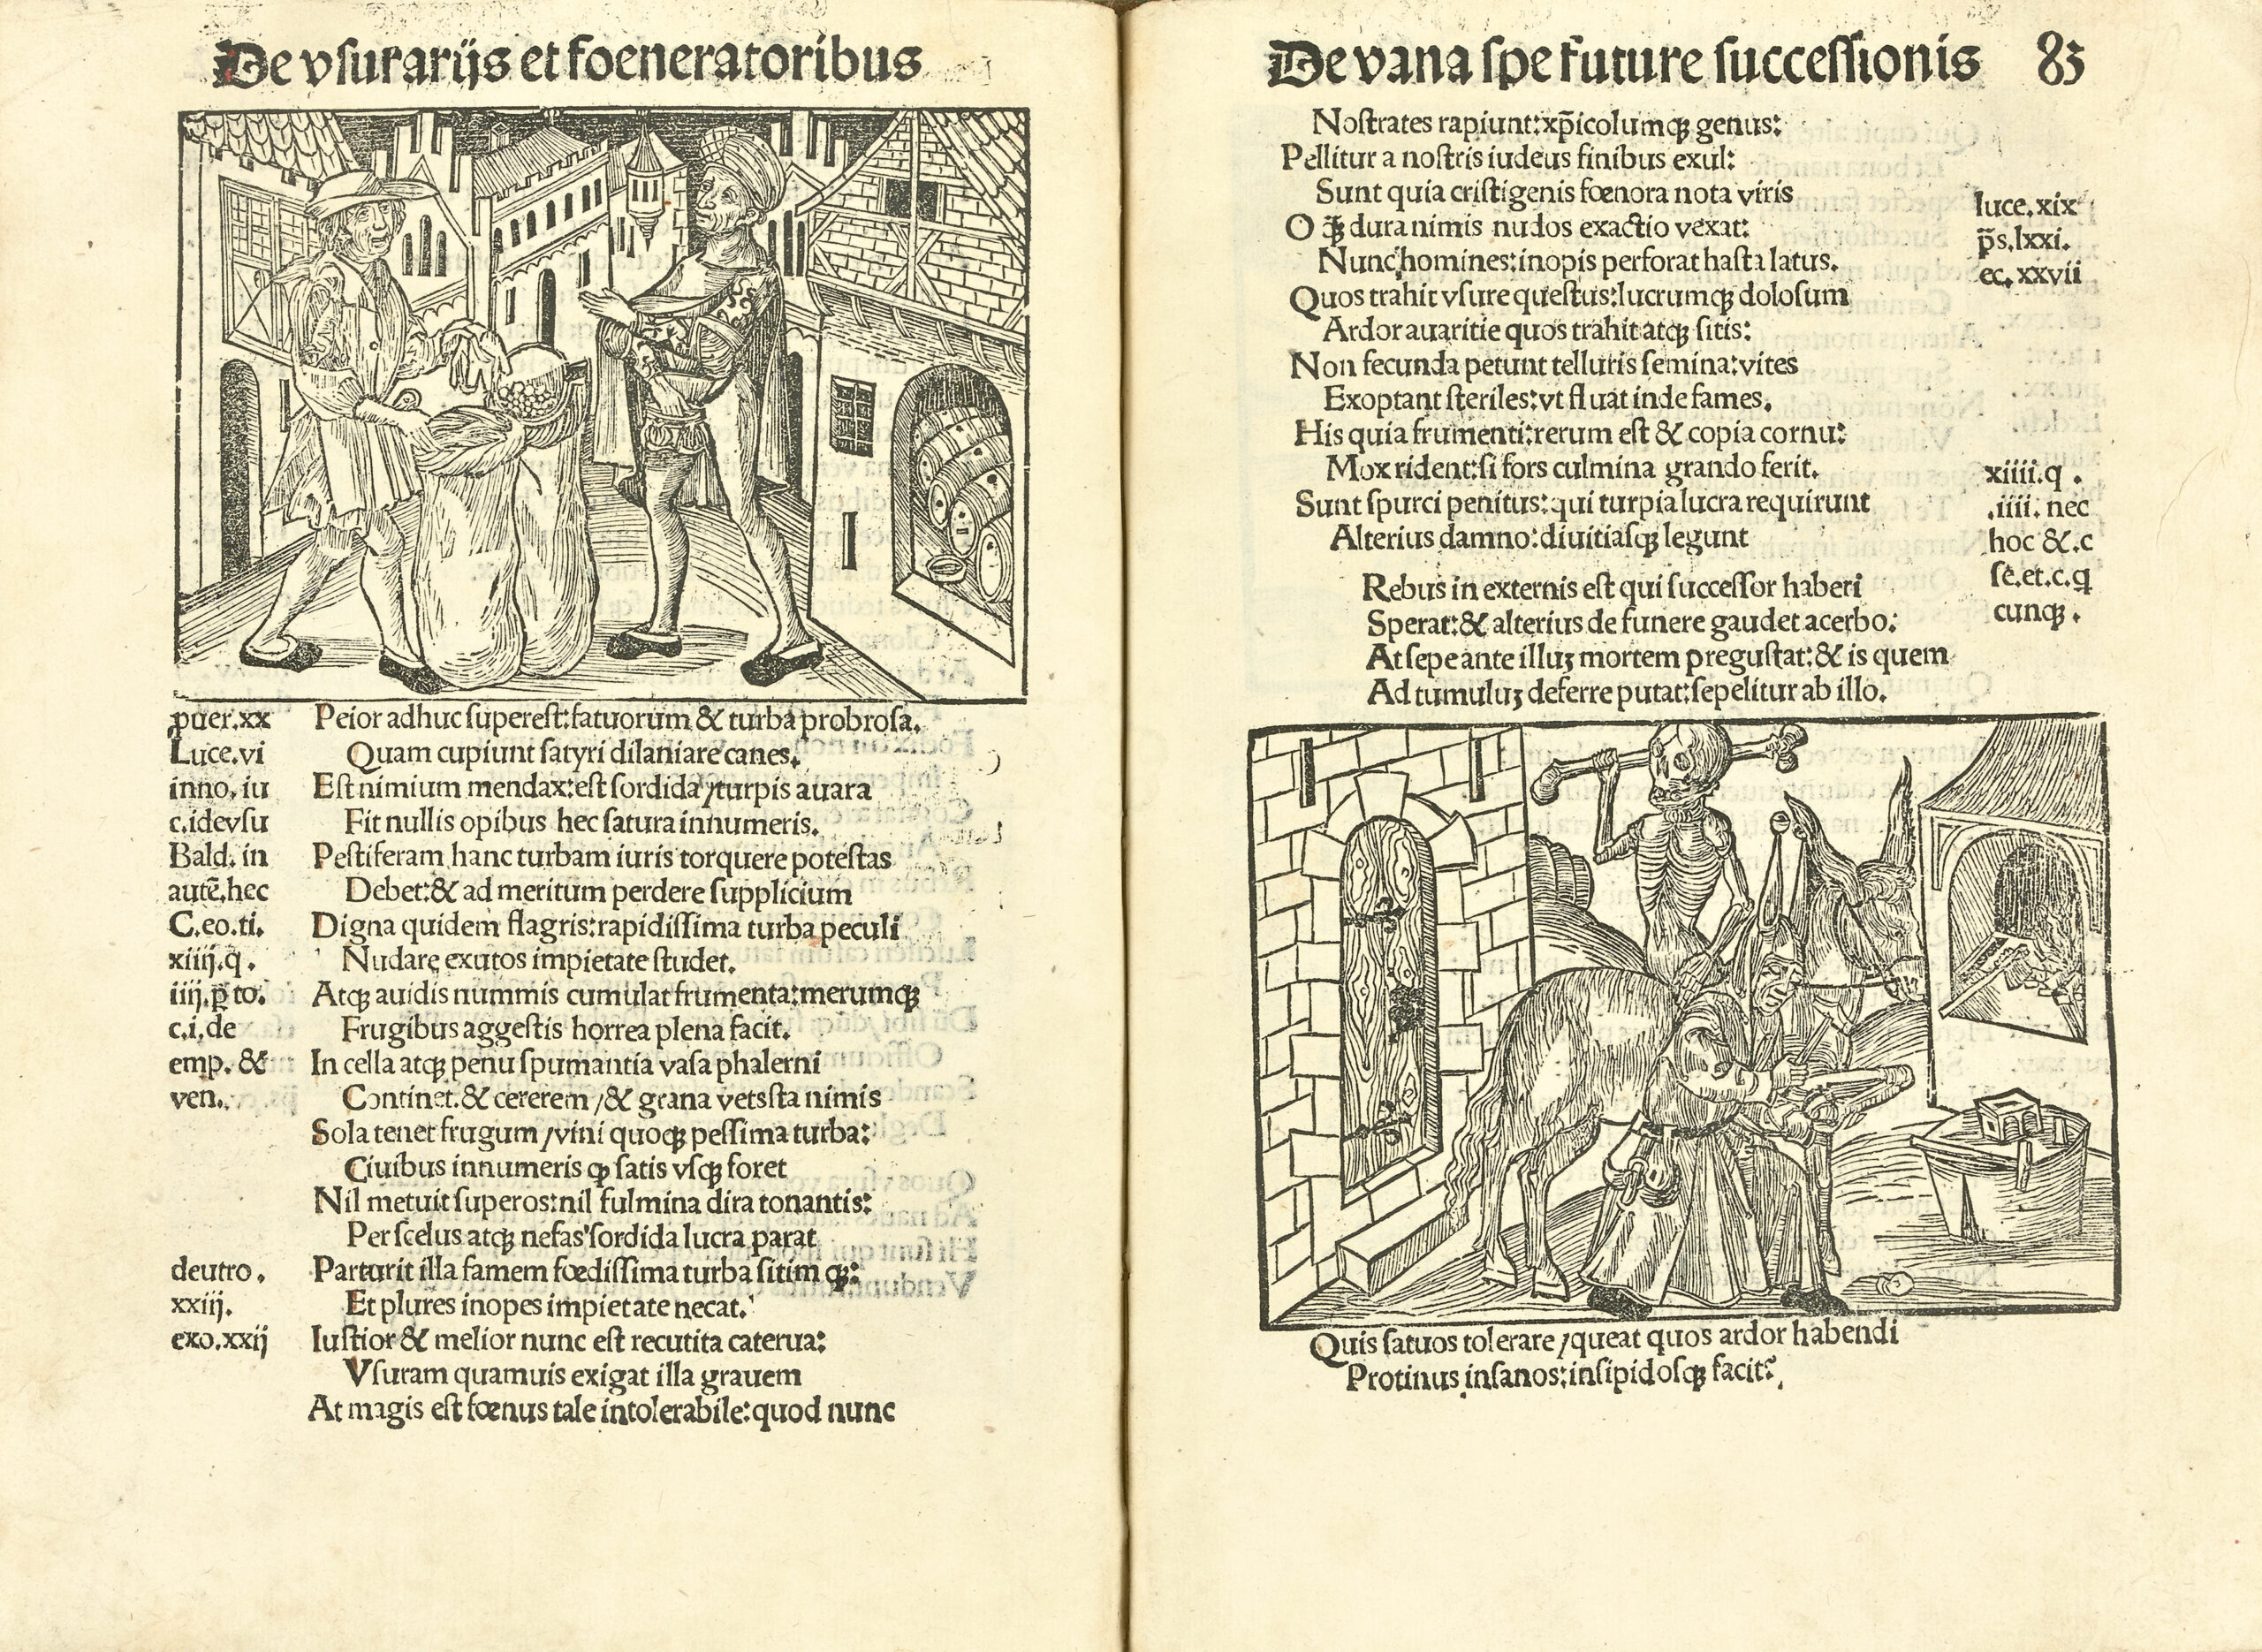 De vſurarijs et foeneratoribus
puer.xx Peior adhuc ſupereſt:fatuorum & turba probroſa.
Luce.vi Quam cupiunt ſatyri dilaniare canes.
inno.iu Eſt nimium mendax:eſt ſordida/turpis auara
c.idevſu Fit nullis opibus hec ſatura innumeris.
Bald.in Peſtiferam hanc turbam iuris torquere poteſtas
autē.hec Debet:& ad meritum perdere ſupplicium
C.eo.ti. Digna quidem flagris:rapidiſſima turba peculi
xiiij.q. Nudare exutos impietate ſtudet.
iiij.p̲ to. Atqꝫ auidis nummis cumulat frumenta:merumqꝫ
c.i.de Frugibus aggeſtis horrea plena facit.
emp.& In cella atqꝫ penu ſpumantia vaſa phalerni
ven. Continet.& cererem/& grana vetsſta nimis
Sola tenet frugum/vini quoqꝫ peſſima turba:
Ciuibus innumeris ꝙ ſatis vſqꝫ foret
Nil metuit ſuperos:nil fulmina dira tonantis:
Per ſcelus atqꝫ nefas ſordida lucra parat
deutro. Parturit illa famem fœdiſſima turba ſitim qꝫ:
xxiij. Et plures inopes impietate necat.
exo.xxij Iuſtior & melior nunc eſt recutita caterua:
Vſuram quamuis exigat illa grauem
At magis eſt fœnus tale intolerabile:quod nunc
De vana ſpe future ſucceſſionis 83
Noſtrates rapiunt:xp̄icolumqꝫ genus:
Pellitur a noſtris iudeus finibus exul:
Sunt quia criſtigenis fœnora nota viris
luce.xix
O qꝫ̃ dura nimis nudos exactio vexat:
p̄s.lxxi.
Nunc homines:inopis perforat haſta latus.
ec.xxvii
Quos trahit vſure queſtus:lucrumqꝫ doloſum
Ardor auaritie quos trahit atqꝫ ſitis:
Non fecunda petunt telluris ſemina:vites
Exoptant ſteriles:vt fluat inde fames.
His quia frumenti:rerum eſt & copia cornu:
Mox rident:ſi fors culmina grando ferit.
xiiii.q .
Sunt ſpurci penitus:qui turpia lucra requirunt
.iiii.nec
Alterius damno:diuitiaſqꝫ legunt
hoc &.c
Rebus in externis eſt qui ſucceſſor haberi
ſē.et.c.q
Sperat:& alterius de funere gaudet acerbo:
cunqꝫ.
At ſepe ante illuꝫ mortem preguſtat:& is quem
Ad tumuluꝫ deferre putat:ſepelitur ab illo.
Quis fatuos tolerare/queat quos ardor habendi
Protinus inſanos:inſipidoſqꝫ facit?